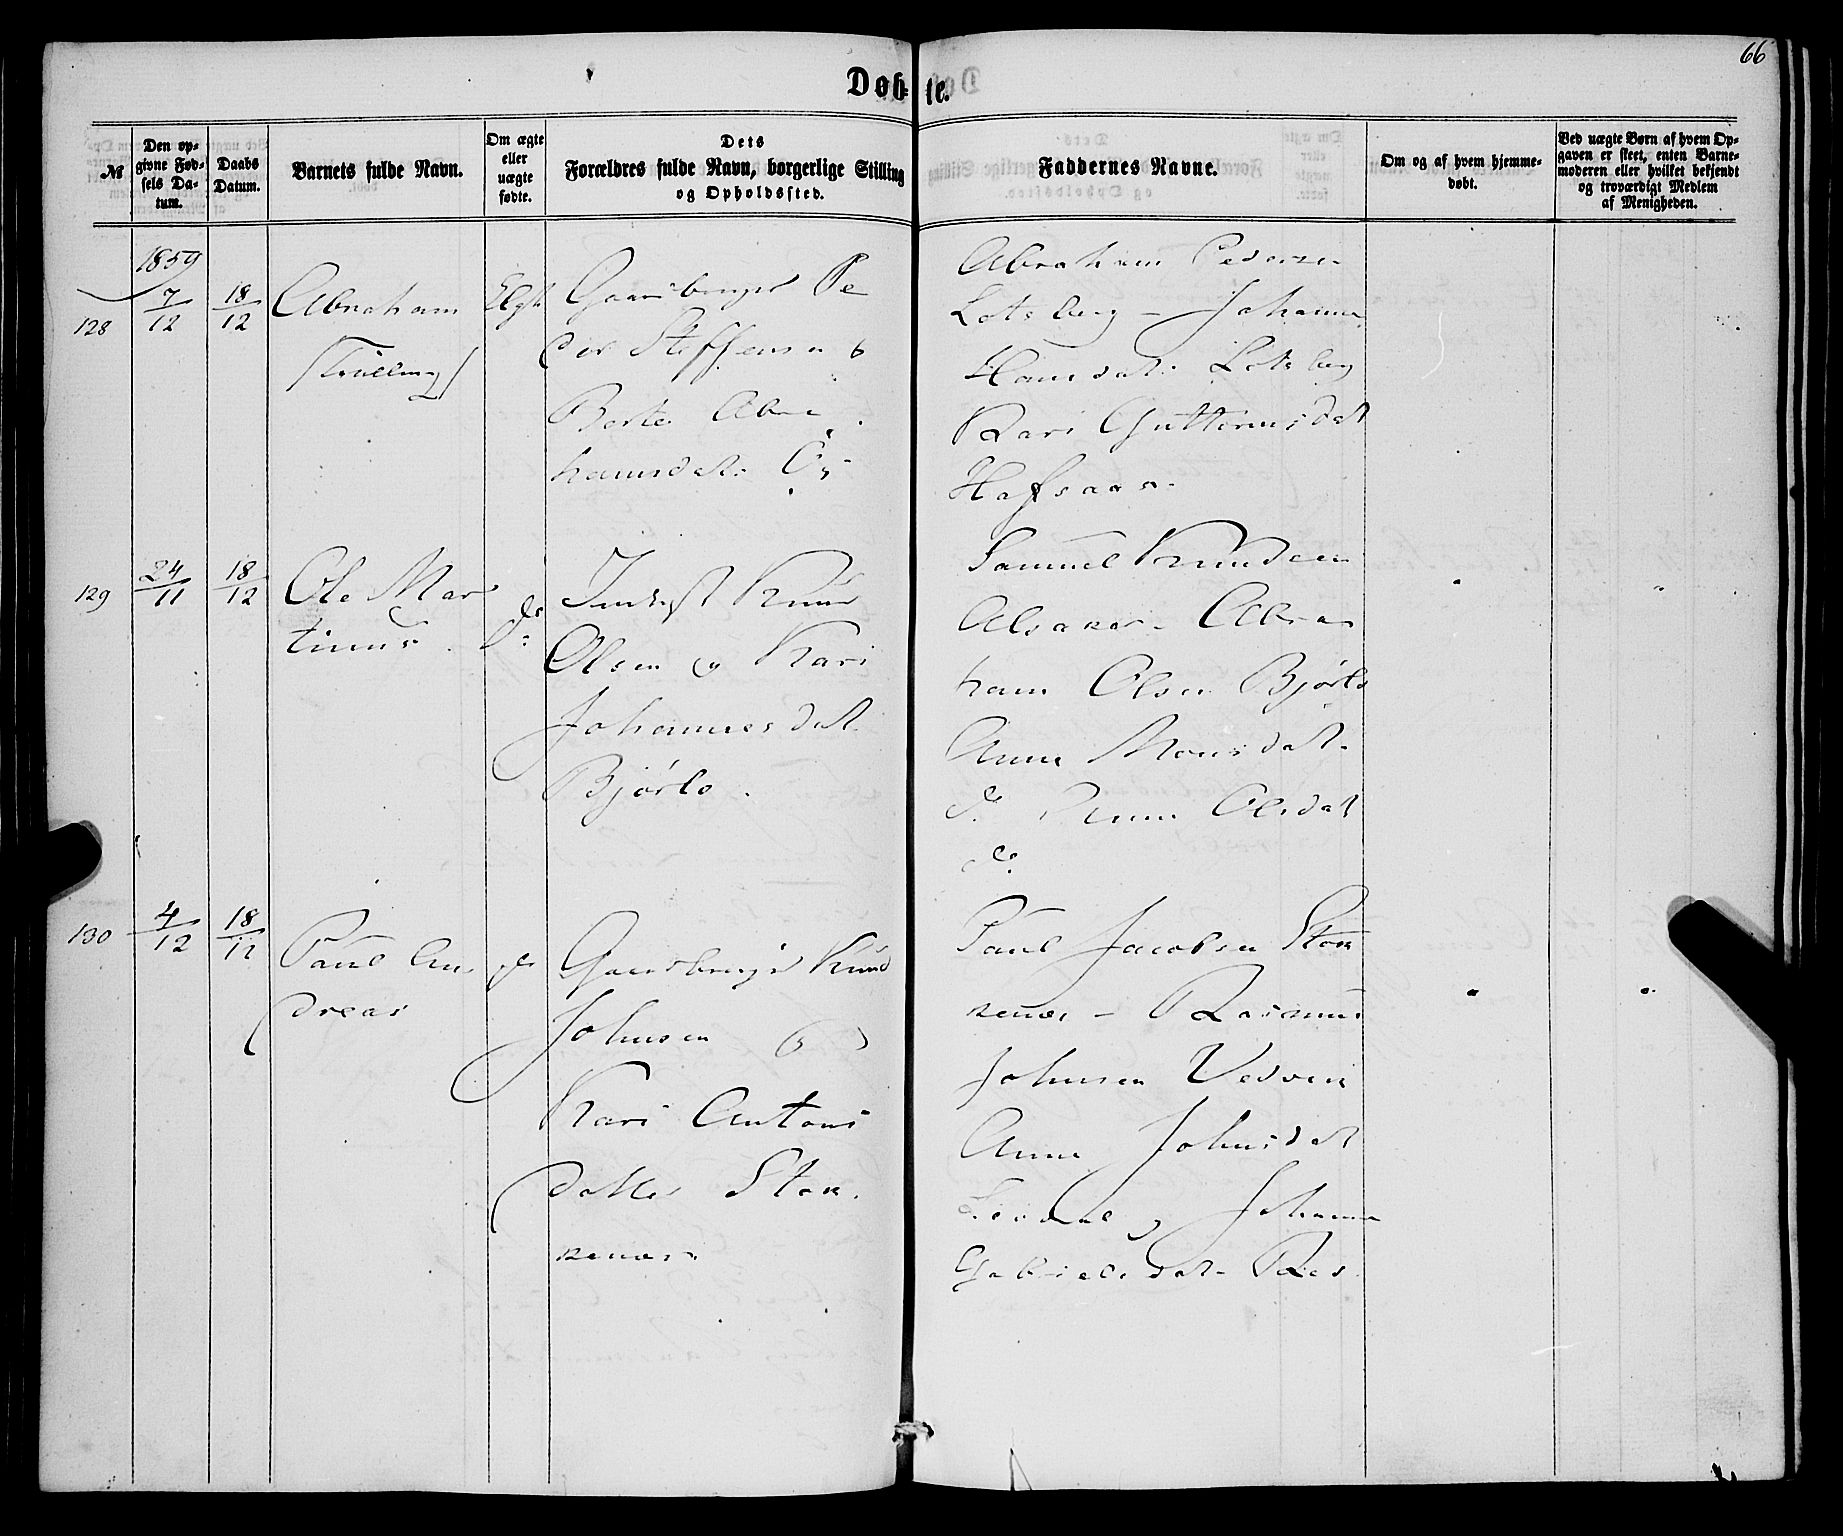 66
Døbte.
№
Den opgivne Fødsels Datum.
Daabs Datum.
Barnets fulde Navn.
Om ægte eller uægte fødte.
Dets Forældres fulde Navn, borgerlige Stilling og Opholdssted.
Faddernes Navne.
Om og af hvem hjemmedøbt.
Ved uægte Børn af hvem Opgaven er skeet, enten Barnemoderen eller hvilket bekjendt og troværdigt Medlem af Menigheden.
1859
128
7/12
18/12
Abraham
(Trilling)
Ægte
Gaardbruger Pe
der Steffensen &
Berte Abra
hamsdat.
Abraham Pedersen
Lotsberg - Johanne
Hansdat. Lotsberg
Kari Guttormsdat
Hafsaas.
129
24/11
18/12
Ole Mar
tinus.
do
Inderst Knud
Olsen og Kari
Johannesdat.
Bjørlo.
Samuel Knudsen
Alsaker - Abra
ham Olsen Bjørlo
Anne Monsdat.
do. Anne Olsdat
do.
130
4/12
18/12
Paul An
dreas
do
Gaardbruger Knud
Johnsen og
Kari Antoni
datter Stok
kenæs.
Paul Jacobsen Stok
kenæs - Rasmus
Johnsen Vedvik
Anne Johnsdat
og Johanne
Gabrielsdat.